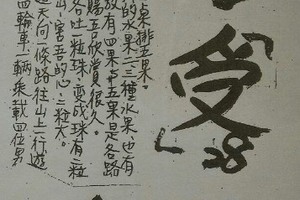 受
28
桌排五果。
的水果六三種水果、也有
教有四果、五果是各路
賜吾欣賞很久。
各吐一粒珠、變成珠有三粒
出、害吾的心、三粒大。
天向一條路往山上行遊
四輪車一輛乘載四位男